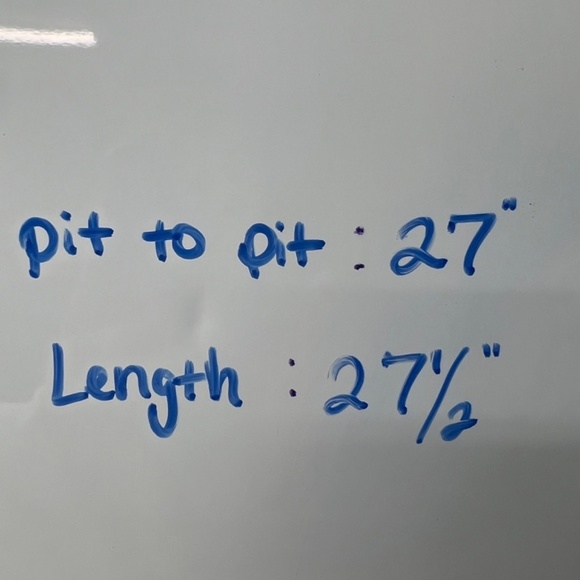 pit to pit : 27"
Length : 27 1/2"